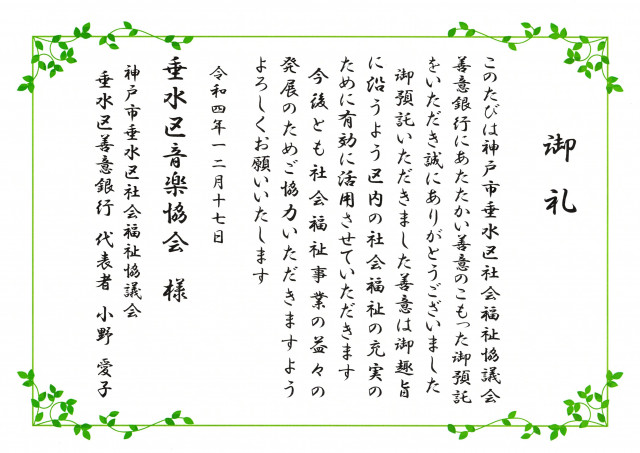 御礼
このたびは神戸市垂水区社会福祉協議会
善意銀行にあたたかい善意のこもった御預託
をいただき誠にありがとうございました
御預託いただきました善意は御趣旨
に沿うよう区内の社会福祉の充実の
ために有効に活用させていただきます
今後とも社会福祉事業の益々の
発展のためご協力いただきますよう
よろしくお願いいたします
令和四年一二月十七日
垂水区音楽協会 様
神戸市垂水区社会福祉協議会
垂水区善意銀行 代表者 小野 愛子